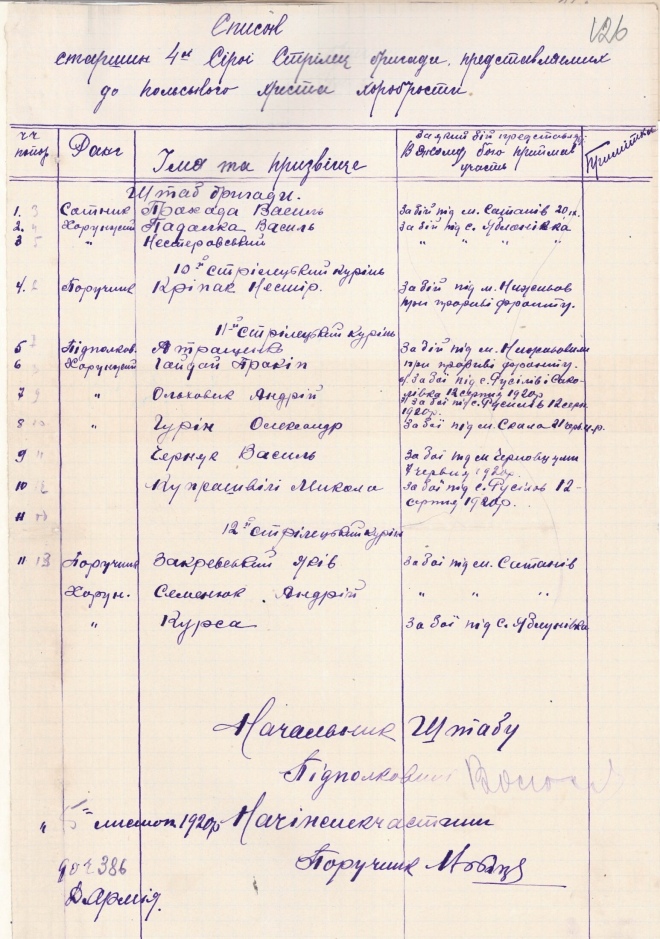 126
Список
старшин 4ої Сірої Стрілец бригади, представляемих
до польського хреста хоробрости.
чч попор Ранг Імя та призвіще За який бій представл. В якому бою приймав участь Примітка
Штаб бригади.
1. 3 Сотник Прахада Василь За бій під м. Сатанів 20
2. Хорунжий Падалка Василь За бій під с. Яблонівка
3 5 " Нестеровський " " "
10й стрілецький курінь
4. Поручник Кріпак Нестір. За бій під м. Нижньов
при прориві фронту.
11й стрілецький курінь
5 Підполков. Атращенко За бій під м. Нижньовим
6 Хорунжий Гайдай Пракіп при прориві фронту.
7 9 " Ольховик Андрій За бої під с. Русілів і Соколівка 12 серпня 1920р
За бої під с. Русілів 12 серп
1920р.
8 " Гурін Олександр За бої під м. Скала 21 черв. р.
9 " Чернук Василь За бої під м Черновцями
7 червня 1920р.
10 " Купрашвілі Микола За бої під с. Русілів 12-
серпня 1920р.
11
12й стрілецький курінь
11 13 Поручник Закревський Яків За бої під м. Сатанів
Хорун. Семенюк Андрій " " "
" Курса За бої під с. Яблунівка
Начальник Штабу
Підполковник
" 5 " листоп 1920р Начінжчастини
Поручник
до ч 386